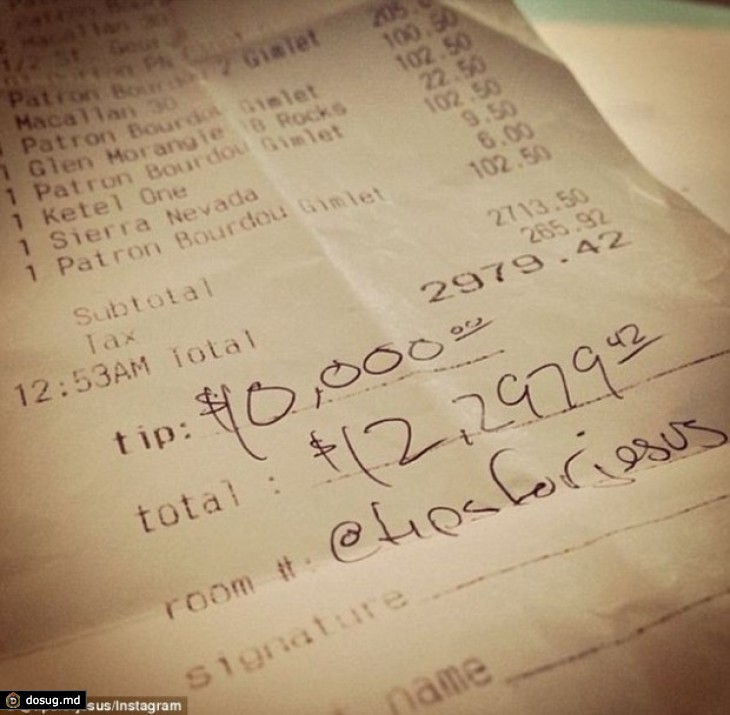 Macallan 30
Patron Bourdou 2 Gimlet
Macallan 30 100.50
1 Patron Bourdou Gimlet 102.50
1 Glen Morangie 18 Rocks 22.50
1 Patron Bourdou Gimlet 102.50
1 Ketel One 9.50
1 Sierra Nevada 6.00
1 Patron Bourdou Gimlet 102.50
Subtotal 2713.50
Tax 265.92
12:53AM Total 2979.42
tip: $10,000 00
total : $12,2979 42
room #: @tipsforjesus
signature
name
dosug.md
sus/Instagram